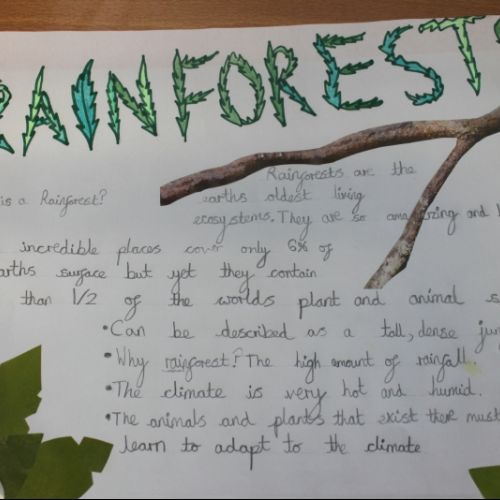 RAINFORESTS
is a Rainforest?
Rainforests are the
earths oldest living
ecosystems. They are so amazing and
incredible places cover only 6% of
earths surface but yet they contain
than 1/2 of the worlds plant and animal s
• Can be described as a tall, dense jun
• Why rainforest? The high amount of rainfall.
• The climate is very hot and humid.
• The animals and plants that exist there must
learn to adapt to the climate